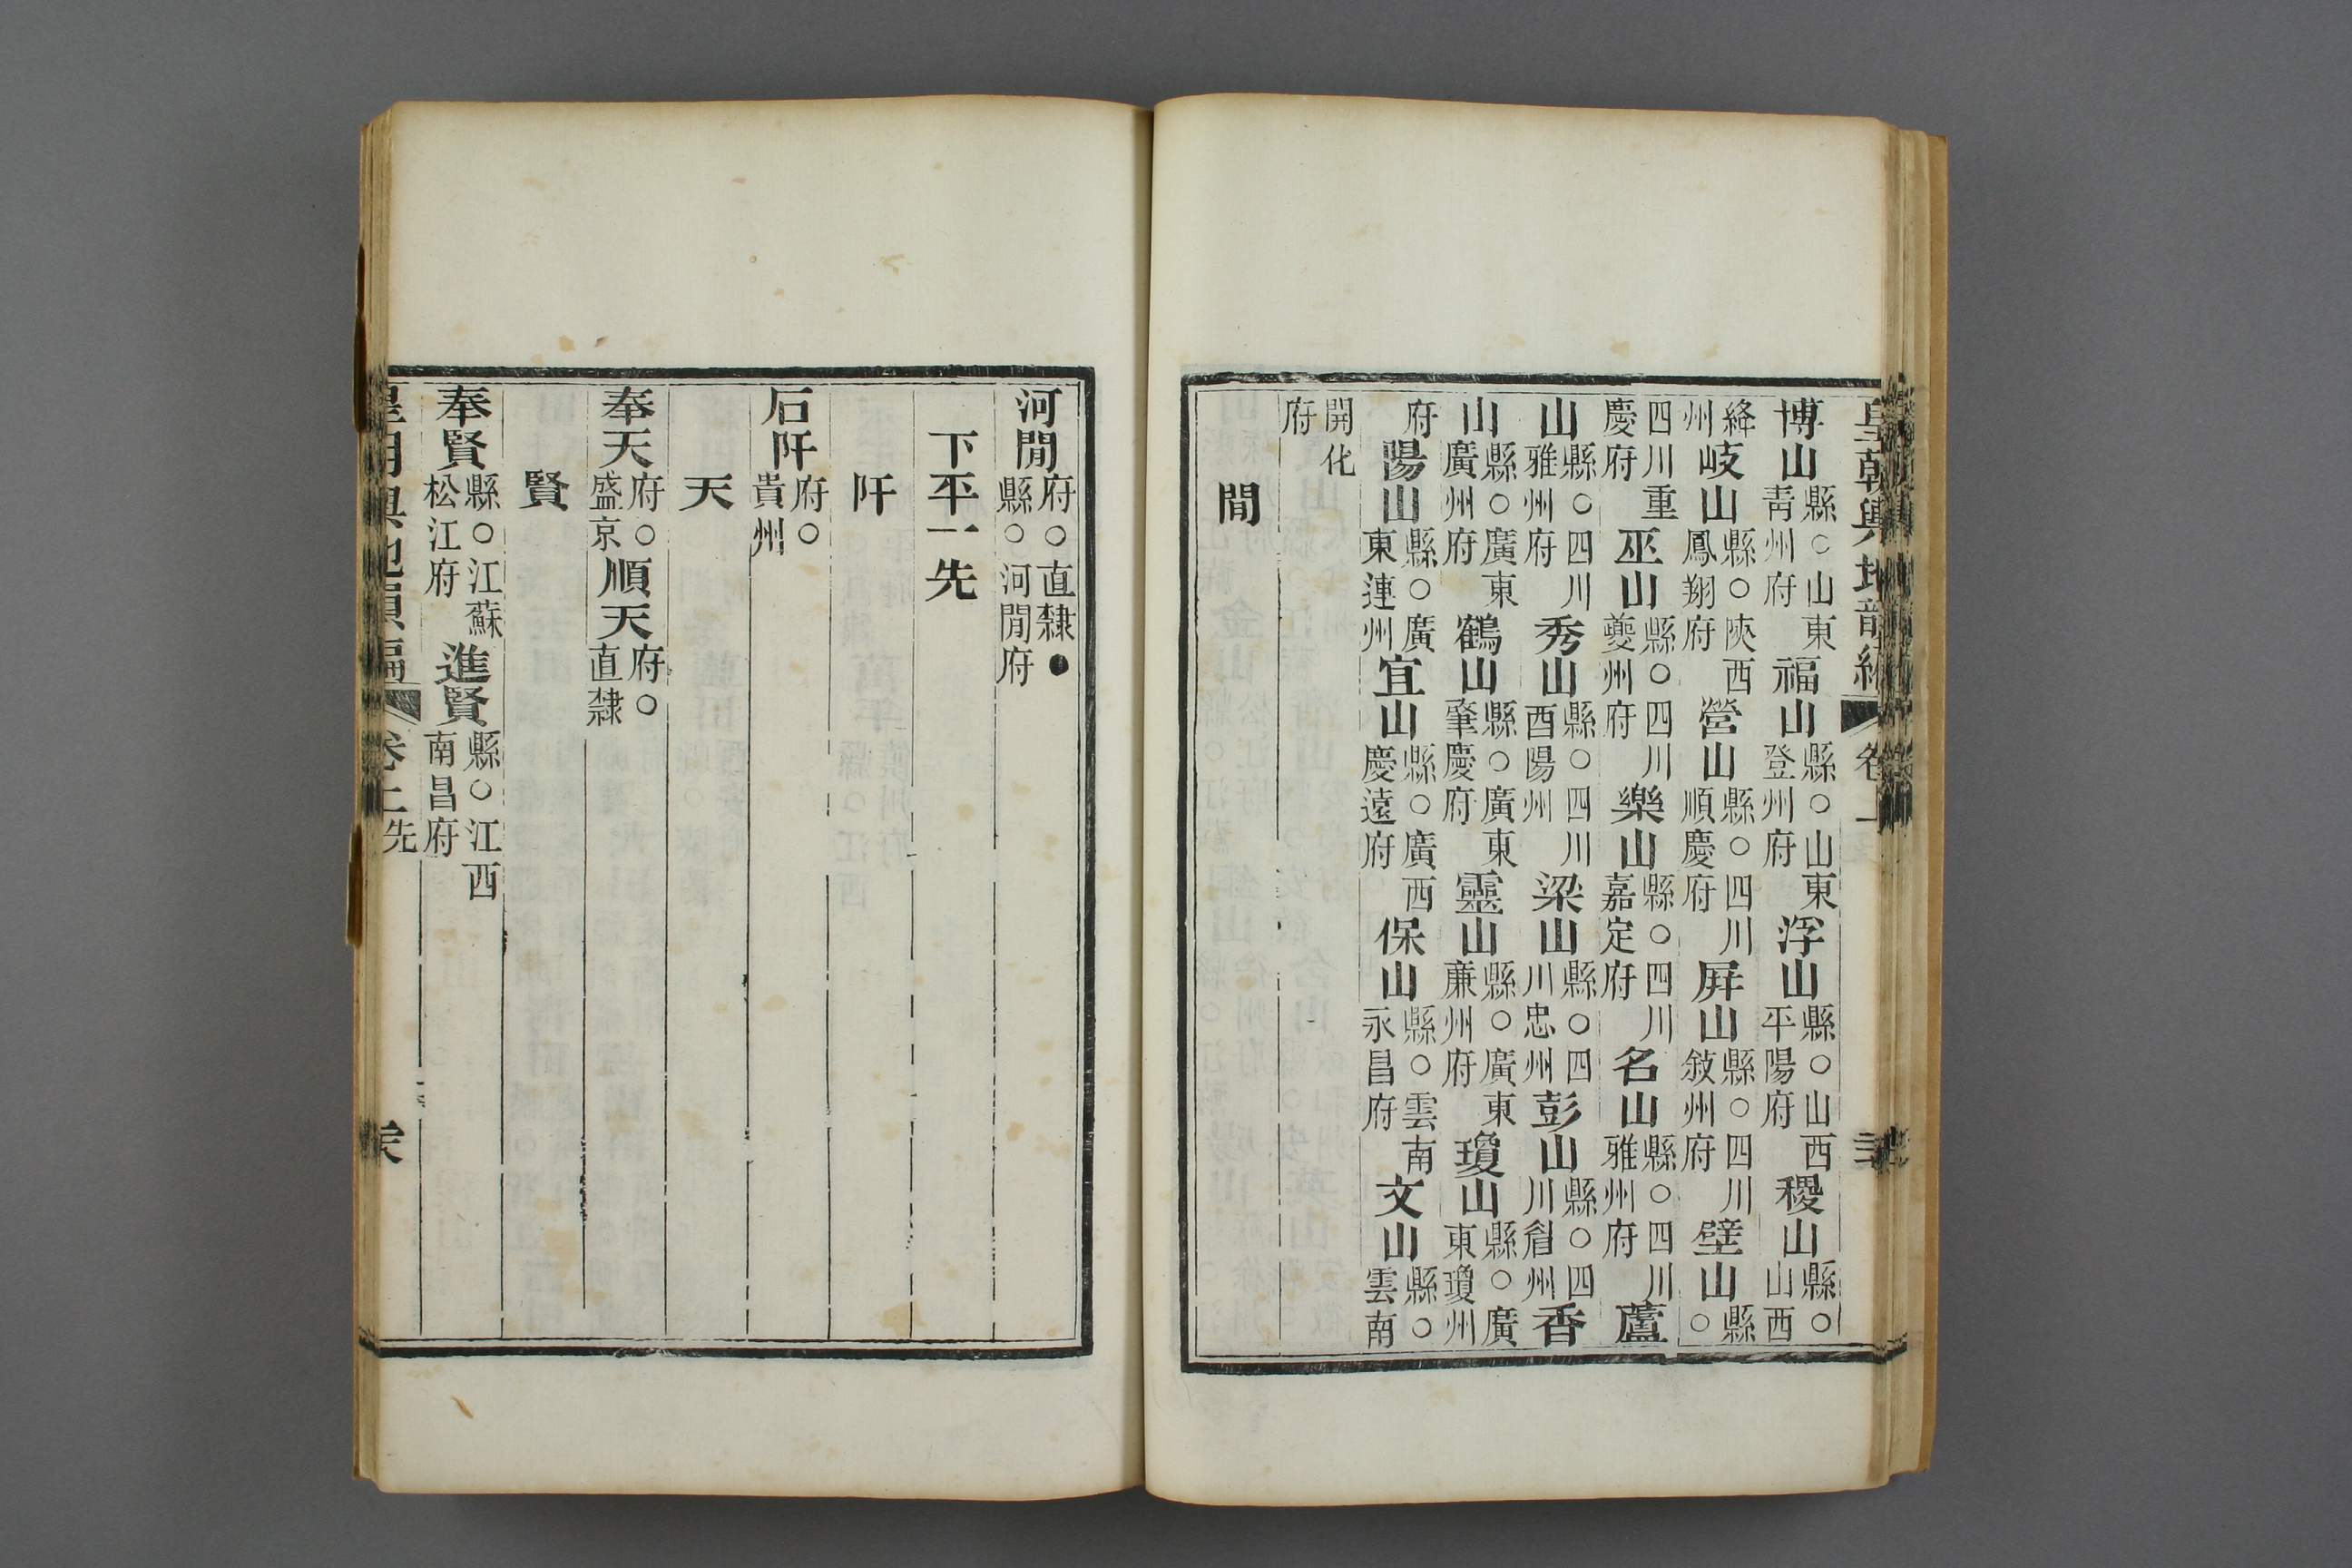 皇朝輿地韻編 卷上
博山縣○山東青州府福山縣○山東登州府浮山縣○山西平陽府稷山縣○山西
絳州岐山縣○陜西鳳翔府營山縣○四川順慶府屛山縣○四川敍州府壁山縣○
四川重慶府巫山縣○四川夔州府樂山縣○四川嘉定府名山縣○四川雅州府蘆
山縣○四川雅州府秀山縣○四川酉陽州梁山縣○四川忠州彭山縣○四川眉州香
山縣○廣東廣州府鶴山縣○廣東肇慶府靈山縣○廣東廉州府瓊山縣○廣東瓊州
府陽山縣○廣東連州宜山縣○廣西慶遠府保山縣○雲南永昌府文山縣○雲南
開化府
閒
河閒府○直隸●縣○河閒府
下平一先
阡
石阡府○貴州
天
奉天府○盛京順天府○直隸
賢
奉賢縣○江蘇松江府進賢縣○江西南昌府
卷上先